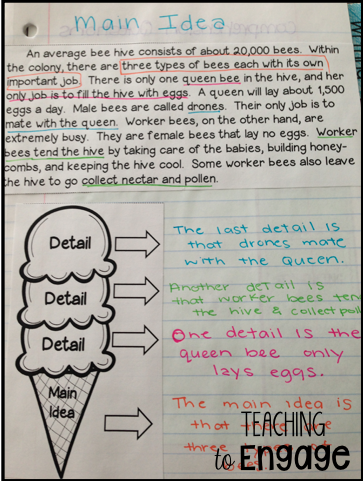 Main Idea
An average bee hive consists of about 20,000 bees. Within
the colony, there are three types of bees each with its own
important job. There is only one queen bee in the hive, and her
only job is to fill the hive with eggs. A queen will lay about 1,500
eggs a day. Male bees are called drones. Their only job is to
mate with the queen. Worker bees, on the other hand, are
extremely busy. They are female bees that lay no eggs. Worker
bees tend the hive by taking care of the babies, building honey-
combs, and keeping the hive cool. Some worker bees also leave
the hive to go collect nectar and pollen.
Detail
The last detail is
that drones mate
with the Queen.
Detail
Another detail is
that worker bees ten
the hive & collect poll
Detail
One detail is the
queen bee only
lays eggs.
Main
Idea
The main idea is
that there are
three
bees.
TEACHING
to Engage